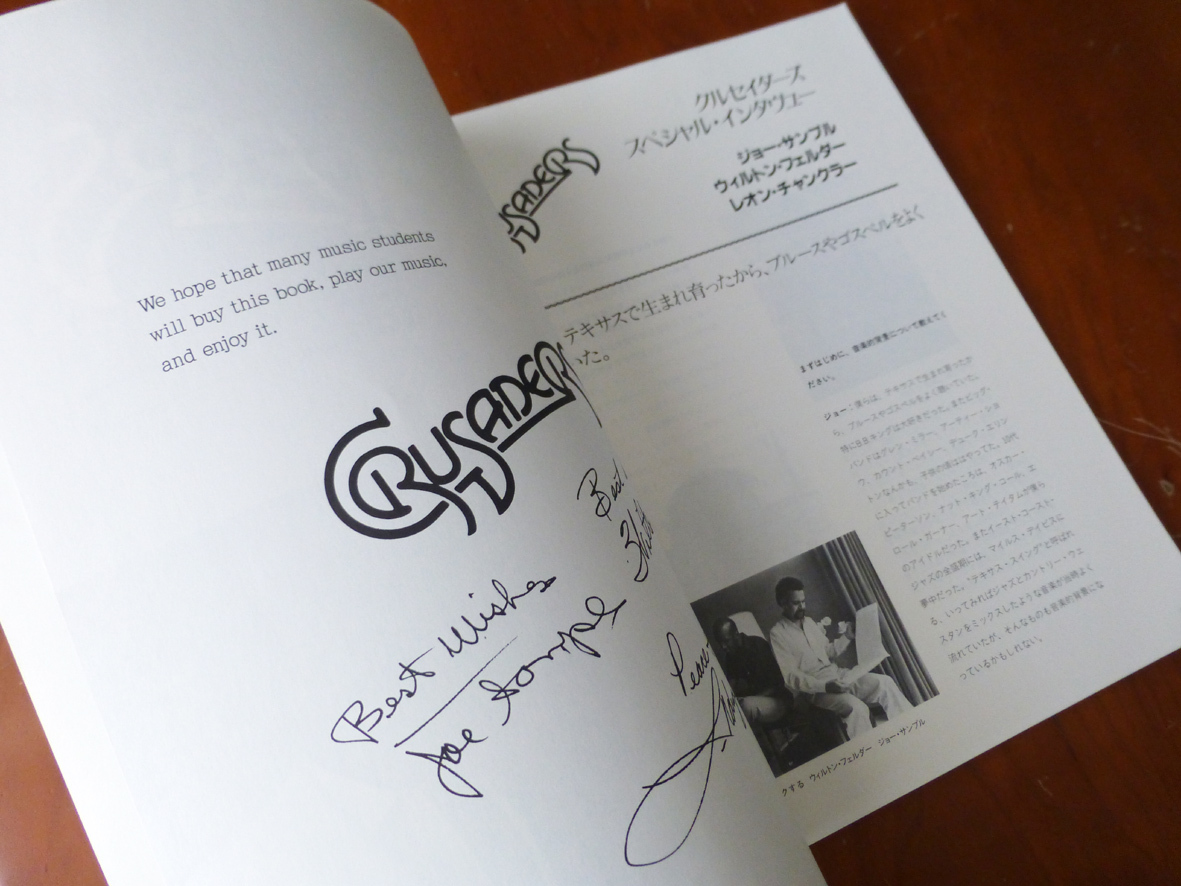 We hope that many music students
will buy this book, play our music,
and enjoy it.
CRUSADERS
Best Wishes
Joe Sample
Best
Peace
USADERS
クルセイダーズ
スペシャル・インタヴュー
ジョー・サンプル
ウィルトン・フェルダー
レオン・チャンクラー
テキサスで生まれ育ったから、ブルースやゴスペルをよく
いた。
まずはじめに、音楽的背景について教えてく
ださい。
ジョー：僕らは、テキサスで生まれ育ったか
ら、ブルースやゴスペルをよく聞いていた。
特にBBキングは大好きだった。またビッグ・
バンドはグレン・ミラー、アーティー・ショ
ウ、カウント・ベイシー、デューク・エリン
トンなんかも、子供の頃ははやってた。10代
に入ってバンドを始めたころは、オスカー・
ピーターソン、ナット・キング・コール、エ
ロール・ガーナー、アート・テイタムが僕ら
のアイドルだった。またイースト・コースト・
ジャズの全盛期には、マイルス・デイビスに
夢中だった。“テキサス・スイング”と呼ばれ
る、いってみればジャズとカントリー・ウェ
スタンをミックスしたような音楽が当時よく
流れていたが、そんなものも音楽的背景にな
っているかもしれない。
クする ウィルトン・フェルダー ジョー・サンプル